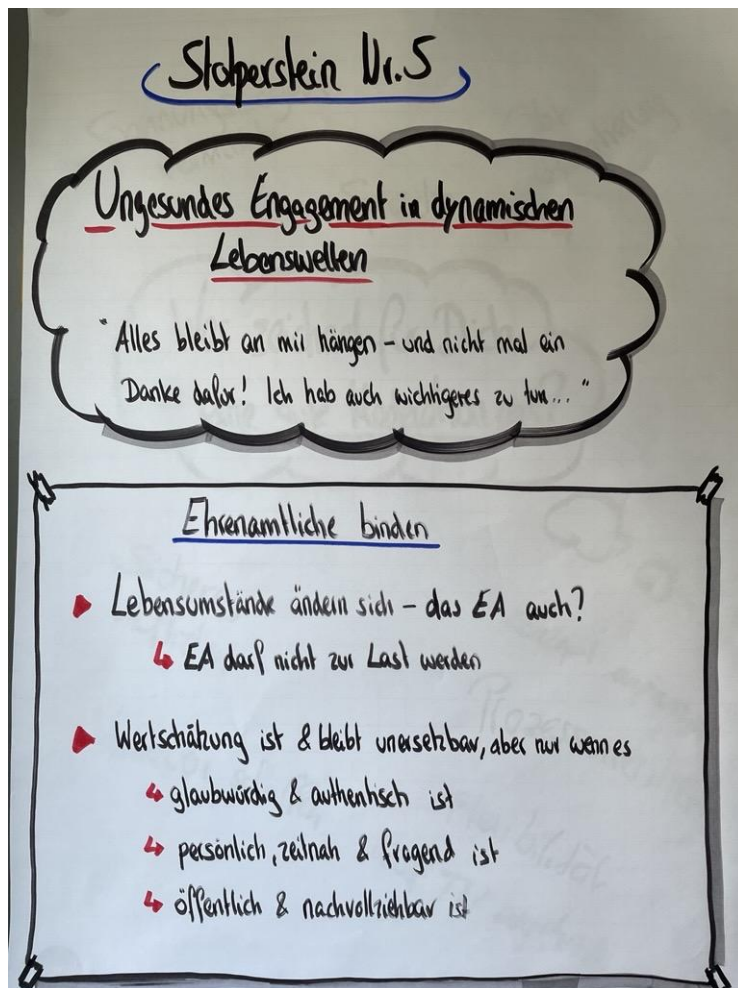 Stolperstein Nr.5
Ungesundes Engagement in dynamischen
Lebenswelten
"Alles bleibt an mir hängen – und nicht mal ein
Danke dafür! Ich hab auch wichtigeres zu tun..."
Ehrenamtliche binden
Lebensumstände ändern sich – das EA auch?
EA darf nicht zur Last werden
Wertschätzung ist & bleibt unersetzbar, aber nur wenn es
glaubwürdig & authentisch ist
persönlich, zeitnah & fragend ist
öffentlich & nachvollziehbar ist